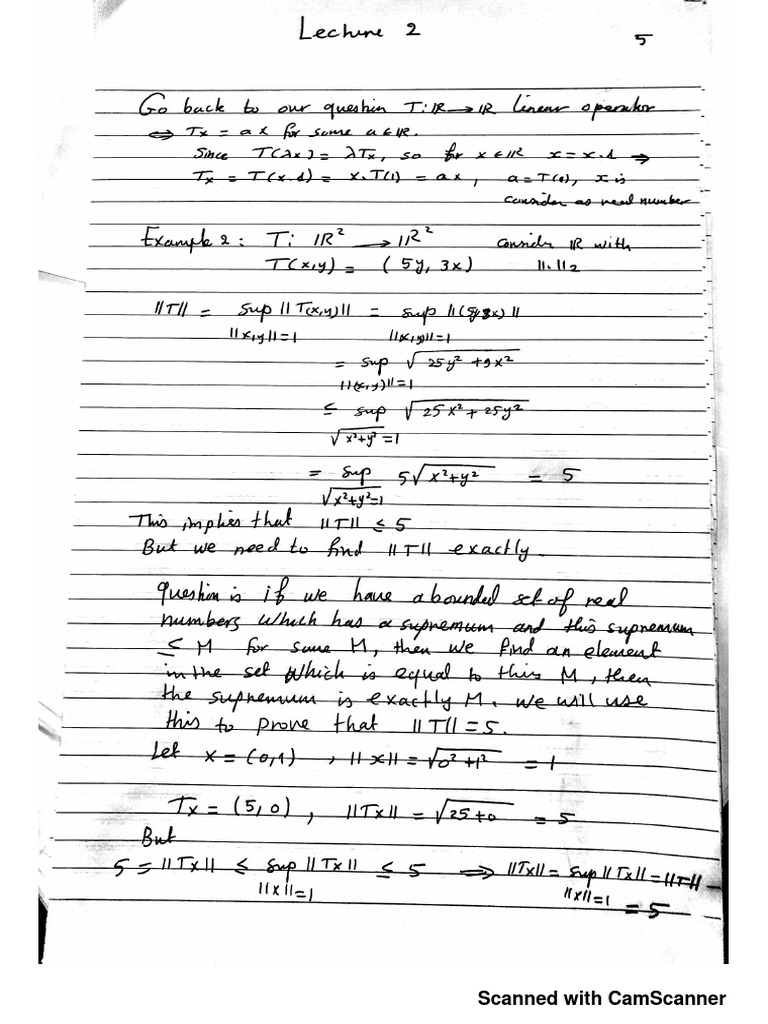 Lecture 2
5
Go back to our question T: ℝ → ℝ linear operator
⇔ Tx = ax for some a ∈ ℝ.
Since T(λx) = λTx, so for x ∈ ℝ x = x.1 ⇒
Tx = T(x.1) = x.T(1) = ax, a = T(1), x is
consider as real number
Example 2: T: ℝ² → ℝ² consider ℝ with
T(x,y) = (5y, 3x) ||.||₂
||T|| = sup ||T(x,y)|| = sup ||(5y,3x)||
||x,y||=1 ||(x,y)||=1
= sup √(25y² + 9x²)
||(x,y)||=1
≤ sup √(25x² + 25y²)
√(x²+y²)=1
= sup 5√(x²+y²) = 5
√(x²+y²)=1
This implies that ||T|| ≤ 5
But we need to find ||T|| exactly.
Question is if we have a bounded set of real
numbers which has a supremum and this supremum
≤ M for some M, then we find an element
in the set which is equal to this M, then
the supremum is exactly M. we will use
this to prove that ||T|| = 5.
Let x = (0,1) , ||x|| = √(0²+1²) = 1
Tx = (5,0) , ||Tx|| = √(25+0) = 5
But
5 = ||Tx|| ≤ sup ||Tx|| ≤ 5 ⇒ ||Tx|| = sup ||Tx|| = ||T||
||x||=1 ||x||=1 = 5
Scanned with CamScanner